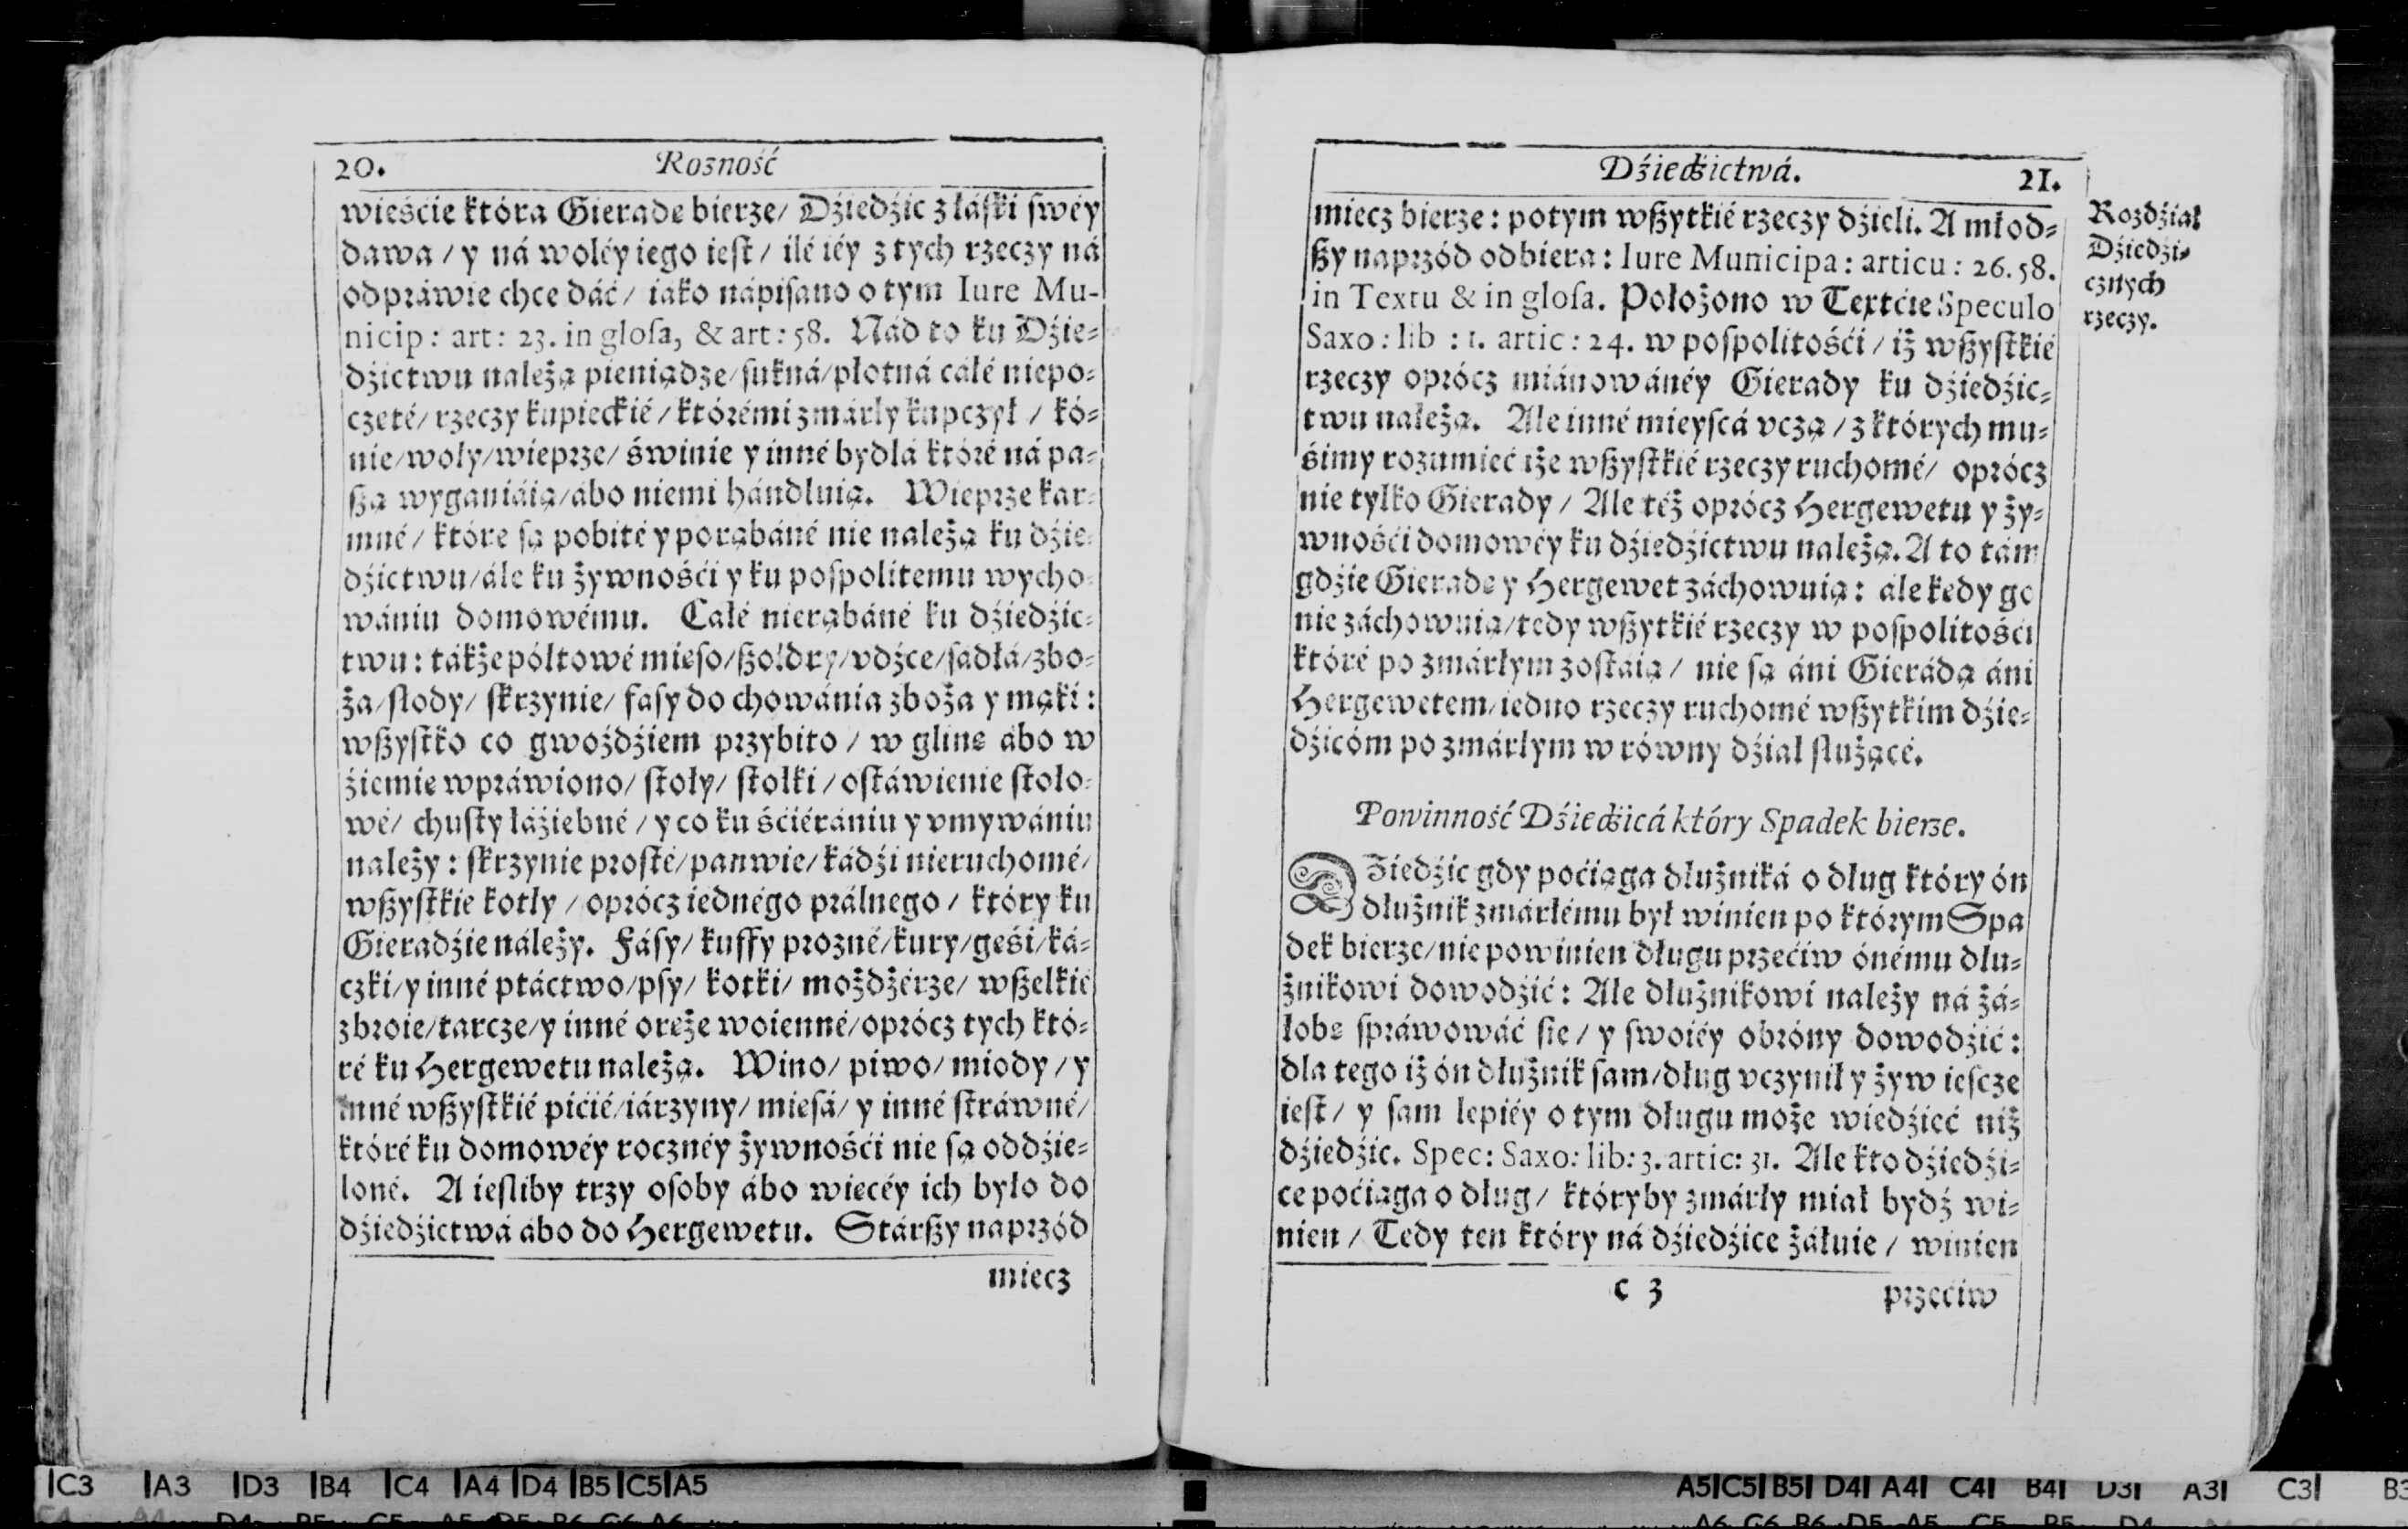 20. Rozność
wieście która Gieradę bierze/ Dźiedźic z łáſki ſwéy
dawa / y ná woléy iego ieſt / ilé iéy z tych rzeczy ná
odpráwie chce dáć / iáko nápiſano o tym Iure Mu-
nicip: art: 23. in gloſa, & art: 58. Nád to ku Dźie-
dźictwu należą pieniądze/ſukná/płotná całé niepo-
częté/ rzeczy kupieckié / którémi zmárły kupczył / kó-
nie/woły/wieprze/ świnie y inné bydlá któré ná pa-
ßą wyganiáią/ábo niemi hándluią. Wieprze kar-
mné / któré ſą pobité y porąbáné nie należą ku dźie-
dźictwu/ále ku żywnośći y ku poſpolitemu wycho-
wániu domowému. Całé nierąbáné ku dźiedźic-
twu: tákże półtowé mięſo/ßołdry/vdźce/ſadłá/zbo-
ża/ſłody/ ſkrzynie/ faſy do chowánia zboża y mąki:
wßyſtko co gwoźdźiem przybito / w glinę ábo w
źiemię wpráwiono/ ſtoły/ ſtołki / oſtáwienie ſtoło-
wé/ chuſty łáźiebné / y co ku śćiérániu y vmywániu
należy: ſkrzynie proſté/panwie/kádźi nieruchomé/
wßyſtkié kotły / oprócz iednégo prálnego / który ku
Gieradźie náleży. Fáſy/ kuffy prozné/kury/gęśi/ká-
czki/y inné ptáctwo/pſy/ kotki/ moźdźérze/ wßelkié
zbroie/tarcze/y inné oręże woienné/oprócz tych któ-
ré ku Hergewetu należą. Wino/ piwo/ miody / y
inné wßyſtkié pićié/iárzyny/ mięſá/ y inné ſtráwné/
któré ku domowéy rocznéy żywnośći nie ſą oddźie-
loné. A ieſliby trzy oſoby ábo więcéy ich było do
dźiedźictwá ábo do Hergewetu. Stárßy naprzód
miecz
Dźiedźictwá. 21.
miecz bierze: potym wßytkié rzeczy dźieli. A młod-
ßy naprzód odbiera: Iure Municipa: articu: 26. 58.
in Textu & in gloſa. Położono w Textćie Speculo
Saxo: lib : 1. artic: 24. w poſpolitośći / iż wßyſtkié
rzeczy oprócz miánowánéy Gierady ku dźiedźic-
twu należą. Ale inné mieyſcá vczą / z których mu-
śimy rozumieć iże wßyſtkié rzeczy ruchomé/ oprócz
nie tylko Gierady / Ale téż oprócz Hergewetu y ży-
wnośći domowéy ku dźiedźictwu należą. A to tám
gdźie Gieradę y Hergewet záchowuią: ále kedy go
nie záchowuią/tedy wßytkié rzeczy w poſpolitośći
któré po zmárłym zoſtáią / nie ſą áni Gierádą áni
Hergewetem/iedno rzeczy ruchomé wßytkim dźie-
dźicóm po zmárłym w równy dźiał ſłużącé.
Rozdźiał
Dźiedźi-
cznych
rzeczy.
Powinność Dźiedźicá który Spadek bierze.
DZiedźic gdy poćiąga dłużniká o dług który ón
dłużnik zmárłému był winien po którym Spa
dek bierze/nie powinien długu przećiw ónému dlu-
żnikowi dowodźić: Ale dłużnikowi należy ná żá-
łobę ſpráwowáć ſię / y ſwoiéy obróny dowodźić:
dla tego iż ón dłużnik ſam/dług vczynił y żyw ieſcze
ieſt / y ſam lepiéy o tym długu może wiedźieć niż
dźiedźic. Spec: Saxo: lib: 3. artic: 31. Ale kto dźiedźi-
cę poćiąga o dług / któryby zmárły miał bydź wi-
nien / Tedy ten który ná dźiedźicę żáłuie / winien
c 3 przećiw
|C3 |A3 |D3 |B4 |C4 |A4 |D4 |B5 |C5 |A5
A5| C5| B5| D4| A4| C4| B4| D3| A3| C3| B3